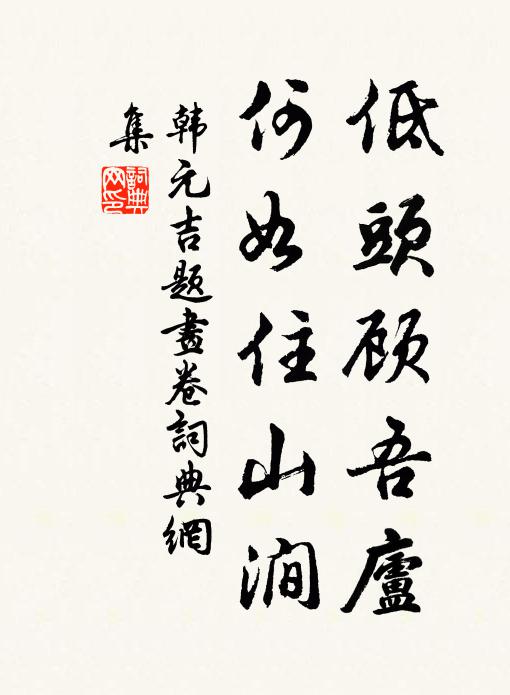 低頭顧吾廬
何如住山澗
韩元吉題畫卷詞典網
集
詞典
网印